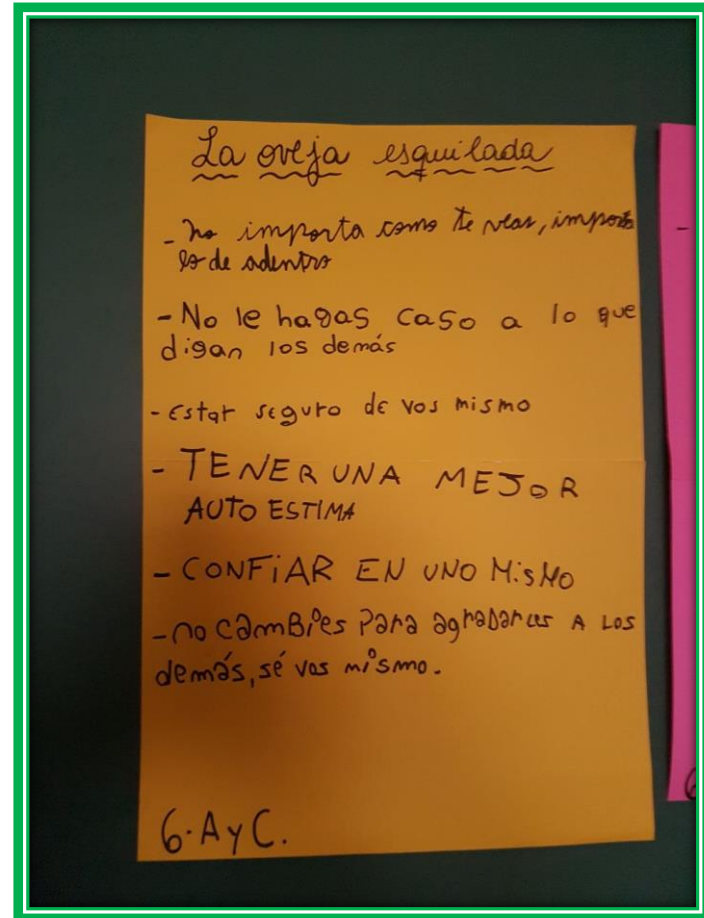 La oveja esquilada
- no importa como te veas, importa
lo de adentro
- No le hagas caso a lo que
digan los demás
- Estar seguro de vos mismo
- TENER UNA MEJOR
AUTO ESTIMA
- CONFiAR EN UNO MisMO
- no camBies Para agradarles A LOS
demás, sé vos mismo.
6.AyC.
-
6